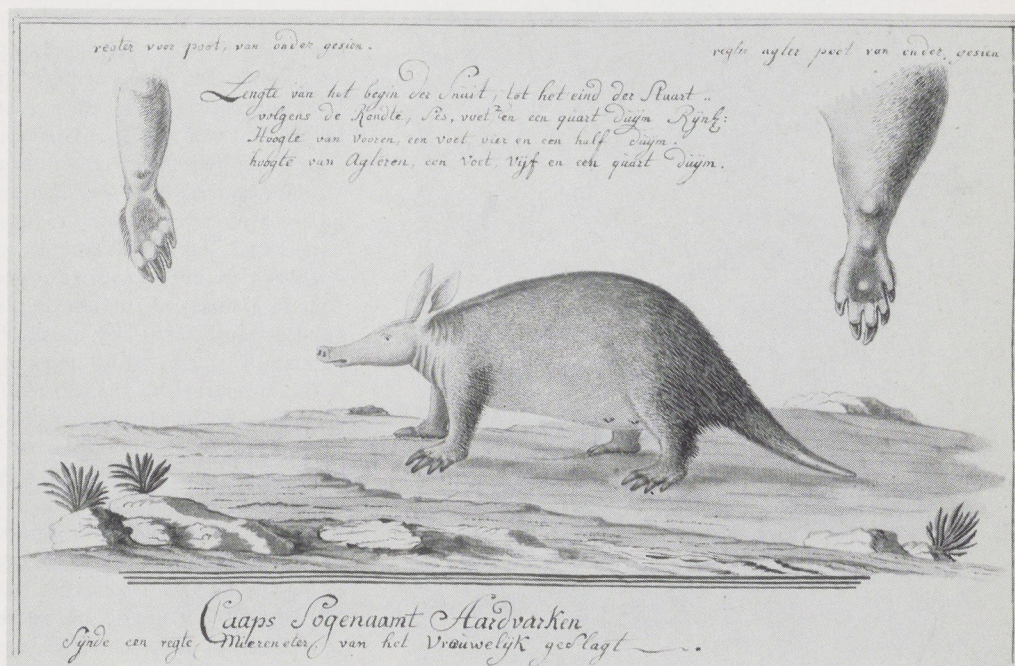 regter voor poot, van onder gesien.
regter agter poot van onder gesien
Lengte van het begin der Snuit, tot het eind der Staart ..
volgens de Rondte, Ses, voet, en een quart duijm Rijnl:
Hoogte van vooren, een voet vier en een half duijm.
hoogte van Agteren, een voet, Vijf en een quart duijm.
Caaps Sogenaamt Aardvarken
Sijnde een regte Miereneter, van het Vrouwelijk geslagt